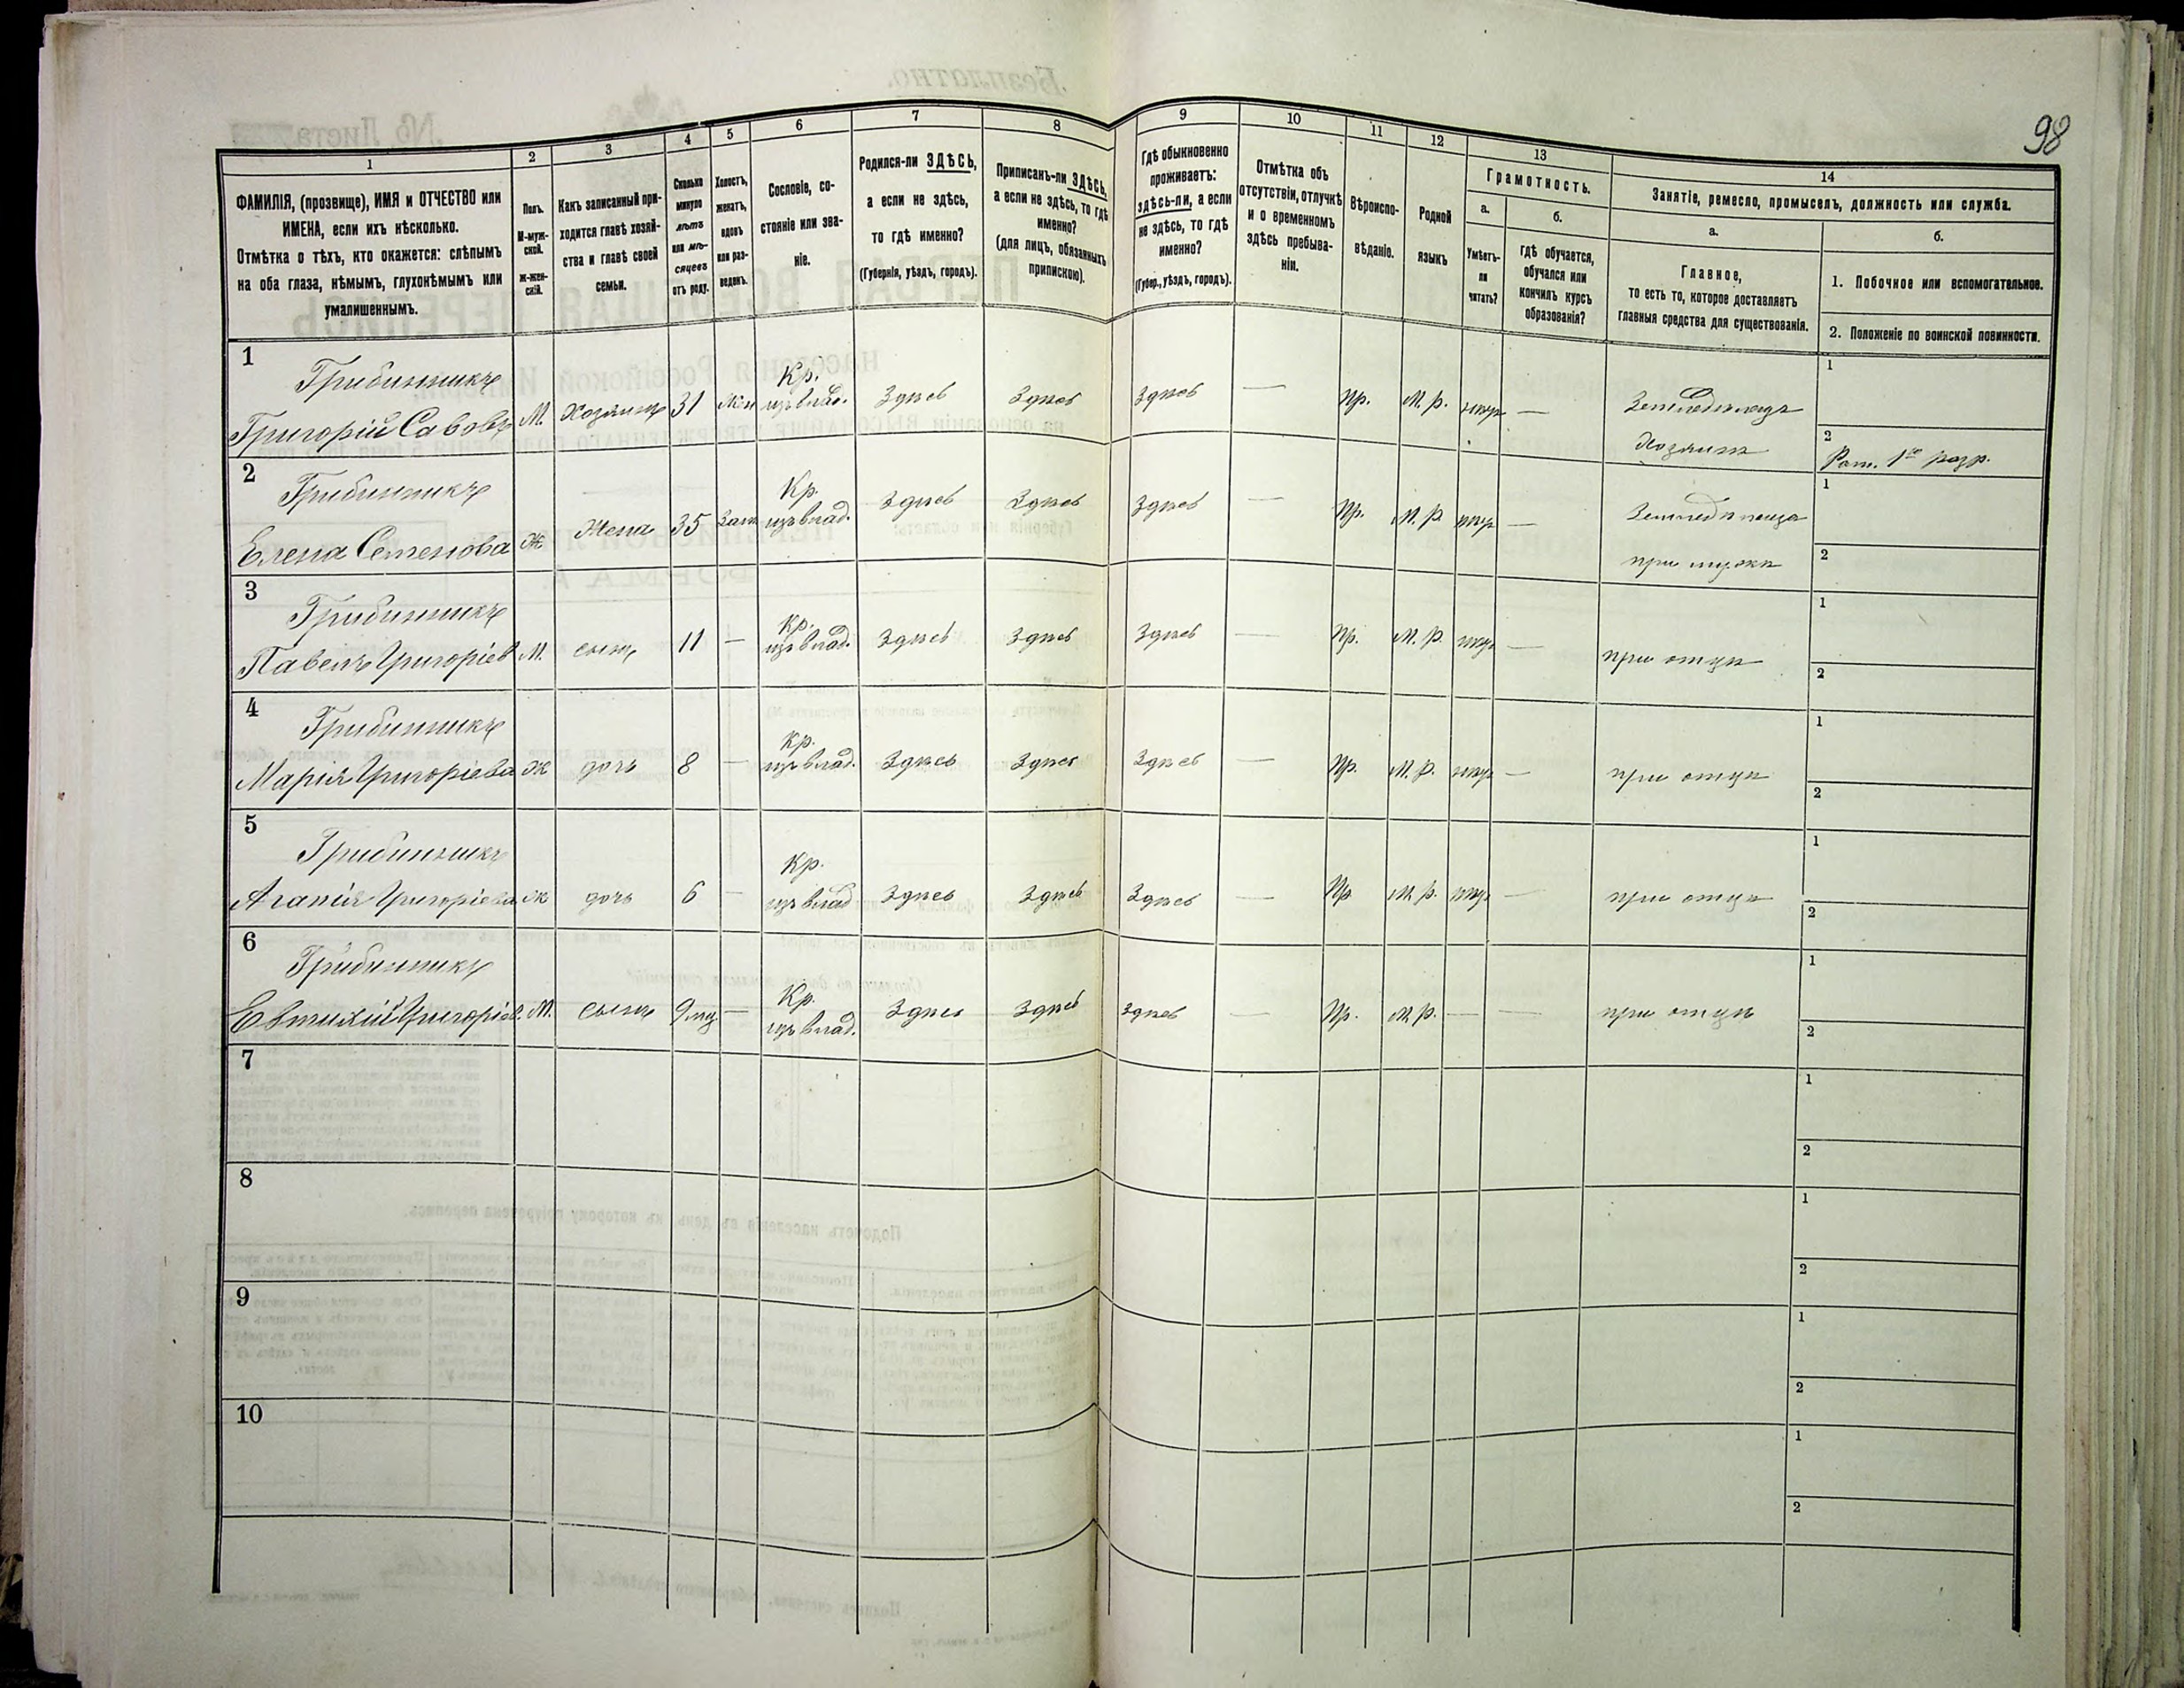 98
1
2
3
4
5
6
7
8
9
10
11
12
13
14
ФАМИЛІЯ, (прозвище), ИМЯ и ОТЧЕСТВО или
ИМЕНА, если ихъ нѣсколько.
Отмѣтка о тѣхъ, кто окажется: слѣпымъ
на оба глаза, нѣмымъ, глухонѣмымъ или
умалишеннымъ.
Полъ.
М-муж-
ской.
Ж-жен-
скій.
Какъ записанный при-
ходится главѣ хозяй-
ства и главѣ своей
семьи.
Сколько
минуло
лѣтъ
или мѣ-
сяцевъ
отъ роду.
Холостъ,
женатъ,
вдовъ
или раз-
веденъ.
Сословіе, со-
стояніе или зва-
ніе.
Родился-ли ЗДѢСЬ,
а если не здѣсь,
то гдѣ именно?
(Губернія, уѣздъ, городъ).
Приписанъ-ли ЗДѢСЬ,
а если не здѣсь, то гдѣ
именно?
(для лицъ, обязанныхъ
припискою).
Гдѣ обыкновенно
проживаетъ:
здѣсь-ли, а если
не здѣсь, то гдѣ
именно?
(Губер., уѣздъ, городъ).
Отмѣтка объ
отсутствіи, отлучкѣ
и о временномъ
здѣсь пребыва-
ніи.
Вѣроиспо-
вѣданіе.
Родной
языкъ
Грамотность.
а.
б.
Умѣетъ-
ли
читать?
гдѣ обучается,
обучался или
кончилъ курсъ
образованія?
Занятіе, ремесло, промыселъ, должность или служба.
а.
б.
Главное,
то есть то, которое доставляетъ
главныя средства для существованія.
1. Побочное или вспомогательное.
2. Положеніе по воинской повинности.
1
Грибинникъ
Григорій Савовъ
М.
Хозяинъ
31
Жен
Кр.
изъ влад.
Здѣсь
Здѣсь
Здѣсь
—
Пр.
М. р.
—
Земледѣлецъ
Хозяинъ
1
2
Рат. 1го разр.
2
Грибинникъ
Елена Семенова
Ж
Жена
35
Зам
Кр.
изъ влад.
Здѣсь
Здѣсь
Здѣсь
—
Пр.
М. р.
—
при мужѣ
1
2
3
Грибинникъ
Павелъ Григоріев
М.
сынъ
11
—
Кр.
изъ влад.
Здѣсь
Здѣсь
Здѣсь
—
Пр.
М. р.
—
при отцѣ
1
2
4
Грибинникъ
Марія Григоріева
Ж
дочь
8
—
Кр.
изъ влад.
Здѣсь
Здѣсь
Здѣсь
—
Пр.
М. р.
—
при отцѣ
1
2
5
Грибинникъ
Агапія Григоріева
Ж
дочь
6
—
Кр.
изъ влад
Здѣсь
Здѣсь
Здѣсь
—
Пр
М. р.
—
при отцѣ
1
2
6
Грибинникъ
Евтихій Григоріев.
М.
сынъ
9 мц
—
Кр.
изъ влад.
Здѣсь
Здѣсь
Здѣсь
—
Пр.
М. р.
—
—
при отцѣ
1
2
7
1
2
8
1
2
9
1
2
10
1
2